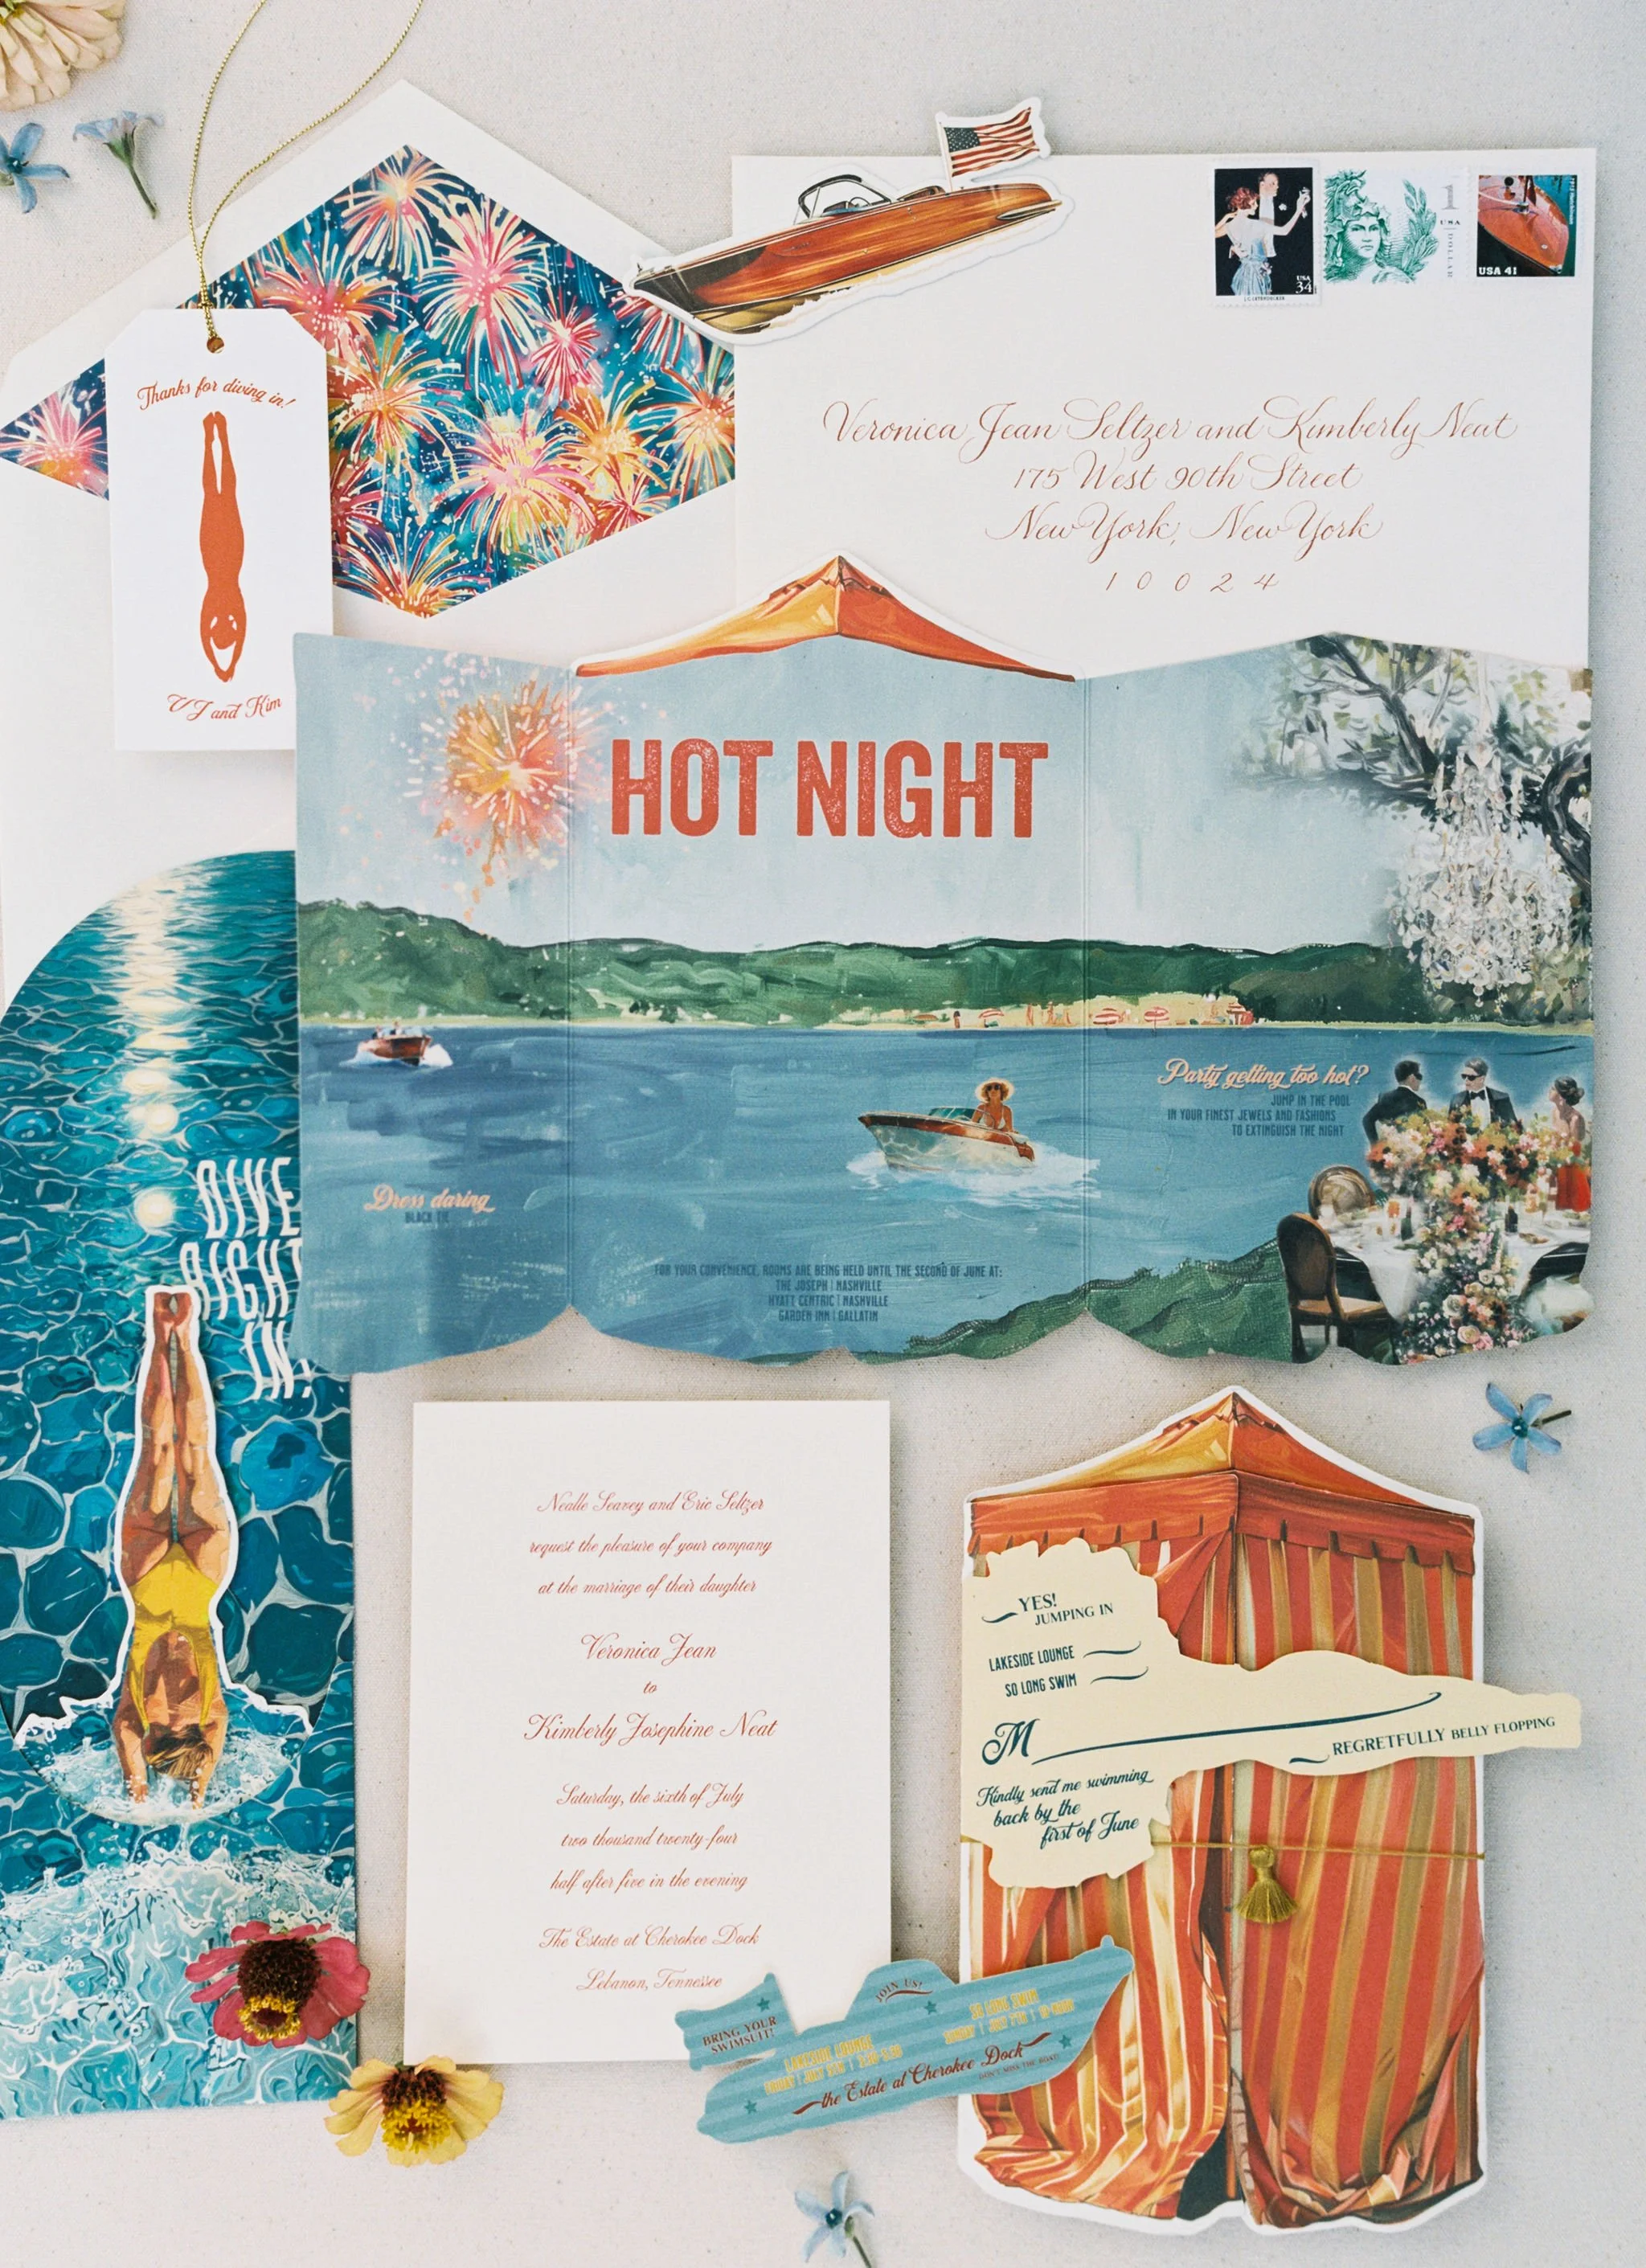 Thanks for diving in!
VJ and Kim
USA
34
J.C. LEYENDECKER
1
USA
DOLLAR
USA 41
Veronica Jean Seltzer and Kimberly Neat
175 West 90th Street
New York, New York
10024
HOT NIGHT
Party getting too hot?
JUMP IN THE POOL
IN YOUR FINEST JEWELS AND FASHIONS
TO EXTINGUISH THE NIGHT
Dress daring
BLACK TIE
FOR YOUR CONVENIENCE, ROOMS ARE BEING HELD UNTIL THE SECOND OF JUNE AT:
THE JOSEPH | NASHVILLE
HYATT CENTRIC | NASHVILLE
GARDEN INN | GALLATIN
DIVE
RIGHT
IN.
Nealle Seavey and Eric Seltzer
request the pleasure of your company
at the marriage of their daughter
Veronica Jean
to
Kimberly Josephine Neat
Saturday, the sixth of July
two thousand twenty-four
half after five in the evening
The Estate at Cherokee Dock
Lebanon, Tennessee
YES!
JUMPING IN
LAKESIDE LOUNGE
SO LONG SWIM
M
REGRETFULLY BELLY FLOPPING
Kindly send me swimming
back by the
first of June
JOIN US!
BRING YOUR
SWIMSUIT!
LAKESIDE LOUNGE
FRIDAY | JULY 5TH
SO LONG SWIM
SUNDAY | JULY 7TH
the Estate at Cherokee Dock
DON'T MISS THE BOAT!